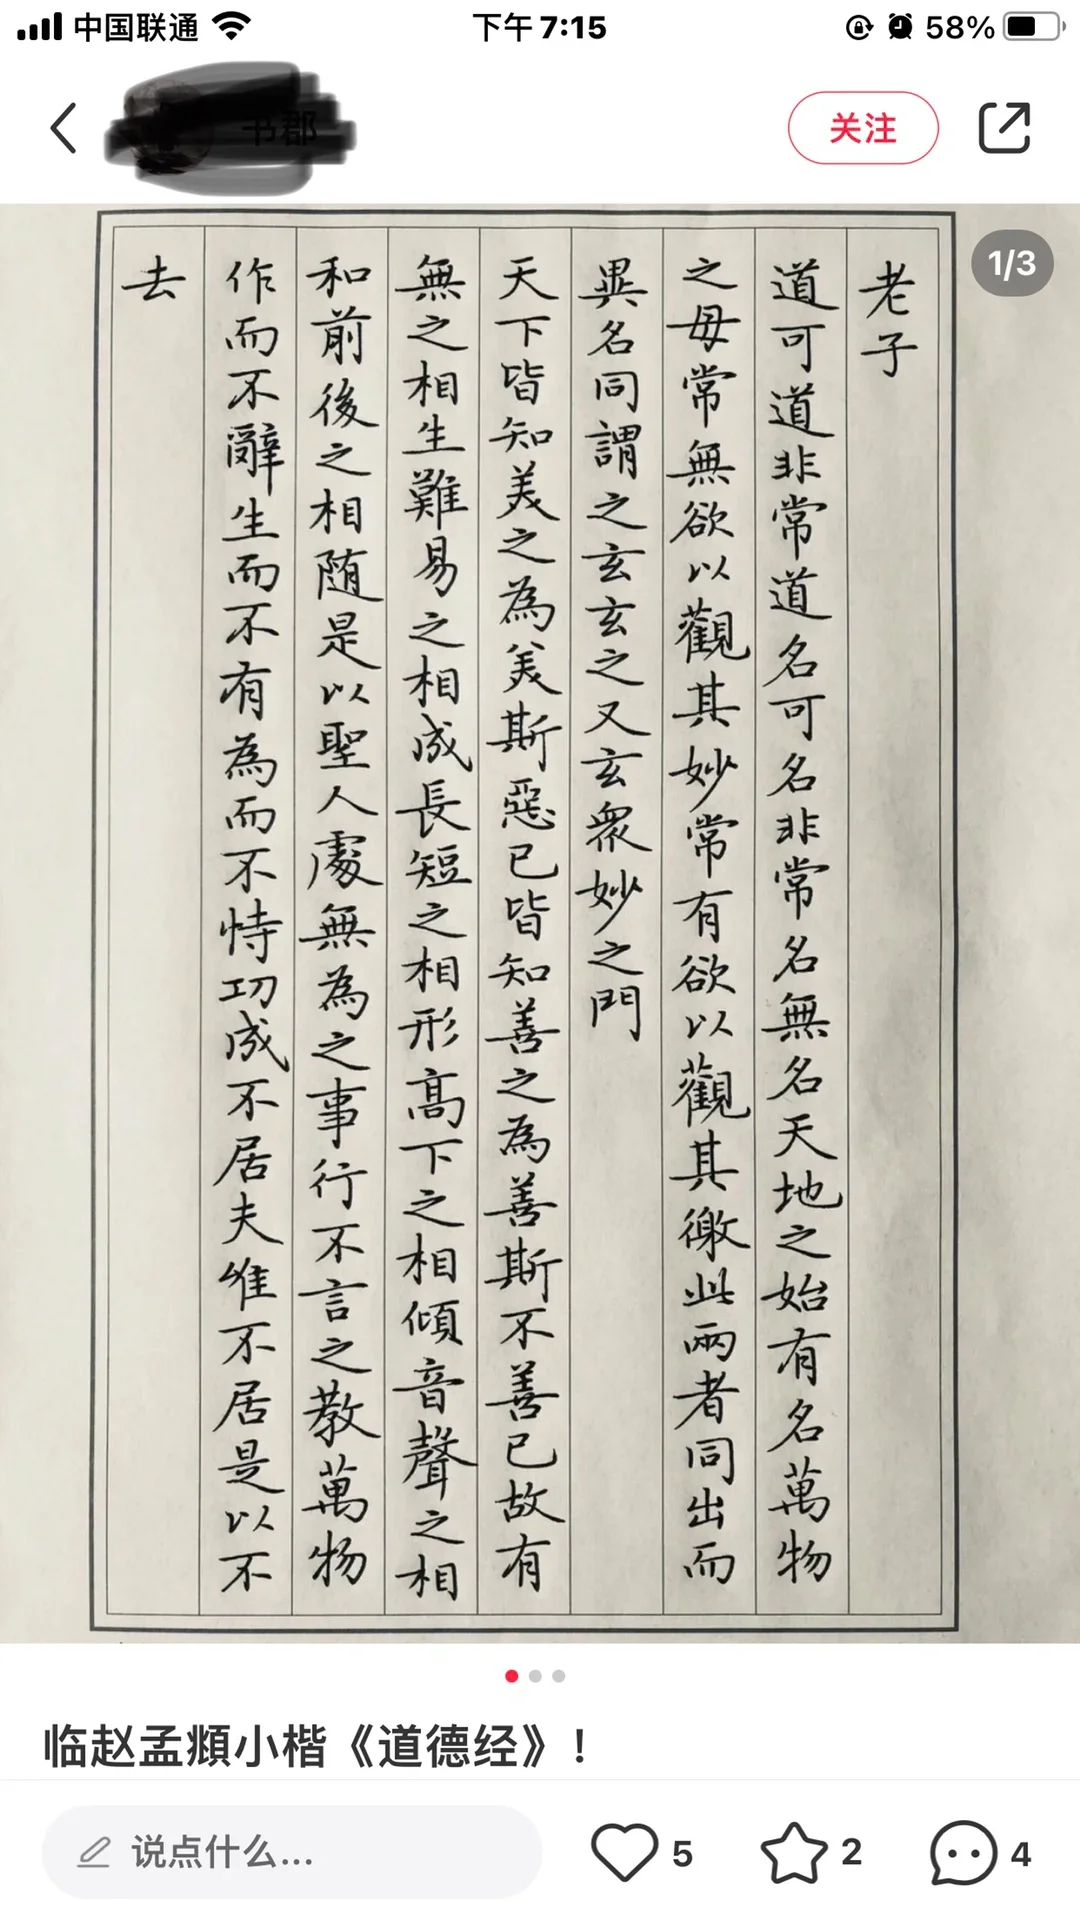 中国联通
下午7:15
58%
书郡
关注
1/3
老子
道可道非常道名可名非常名無名天地之始有名萬物
之毋常無欲以觀其妙常有欲以觀其徼此兩者同出而
異名同謂之玄玄之又玄衆妙之門
天下皆知美之為美斯惡已皆知善之為善斯不善已故有
無之相生難易之相成長短之相形高下之相傾音聲之相
和前後之相随是以聖人處無為之事行不言之教萬物
作而不辭生而不有為而不恃功成不居夫唯不居是以不
去
临赵孟頫小楷《道德经》！
说点什么...
5
2
4